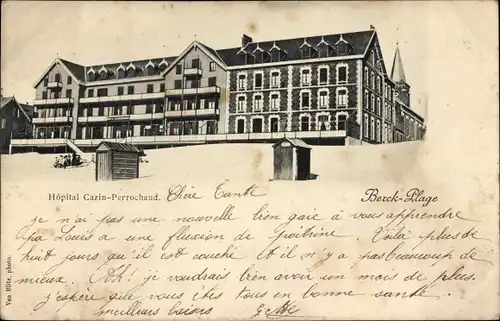 Hôpital Cazin-Perrochaud.
Berck-Plage
Chère Tante
je n'ai pas une nouvelle bien gaie à vous apprendre
pa Louis a une fluxion de poitrine. Voilà plus de
huit jours qu'il est couché et il n'y a pas beaucoup de
mieux. Ah! je voudrais bien avoir un mois de plus.
j'espère que vous êtes tous en bonne santé.
meilleurs baisers
Van Blitz, phot.